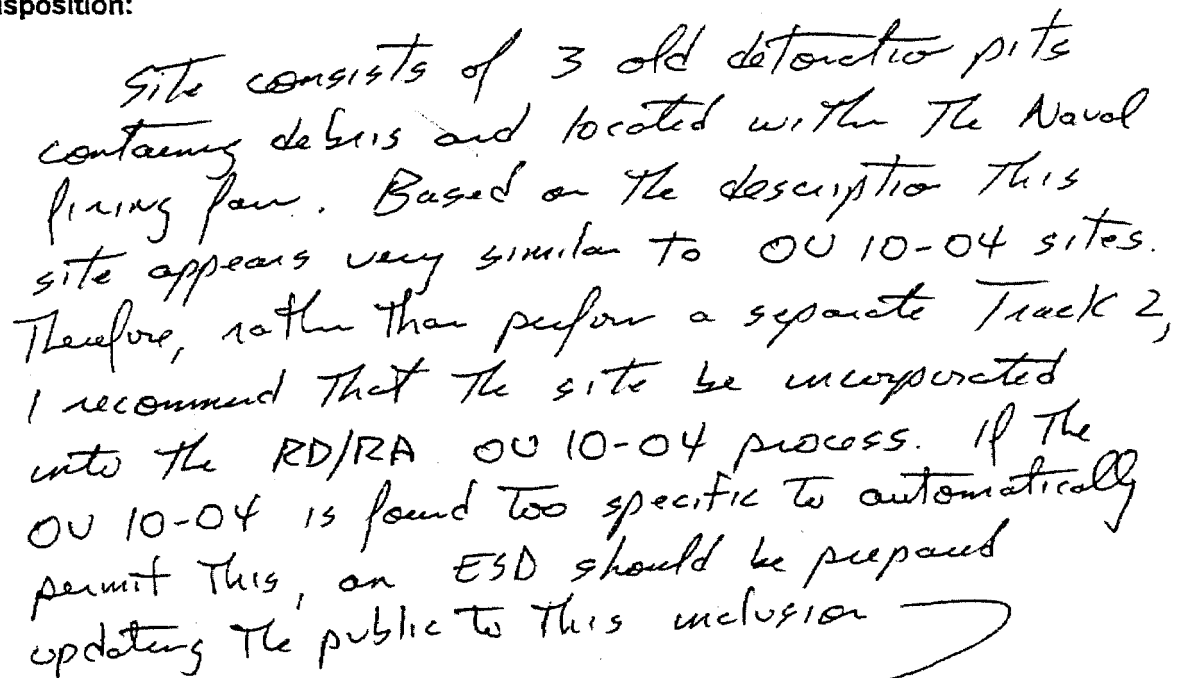 isposition:
Site consists of 3 old detonation pits
containing debris and located within the Naval
firing fan. Based on the description this
site appears very similar to OU 10-04 sites.
Therefore, rather than perform a separate Track 2,
I recommend that the site be incorporated
into the RD/RA OU 10-04 process. If the
OU 10-04 is found too specific to automatically
permit this, an ESD should be prepared
updating the public to this inclusion